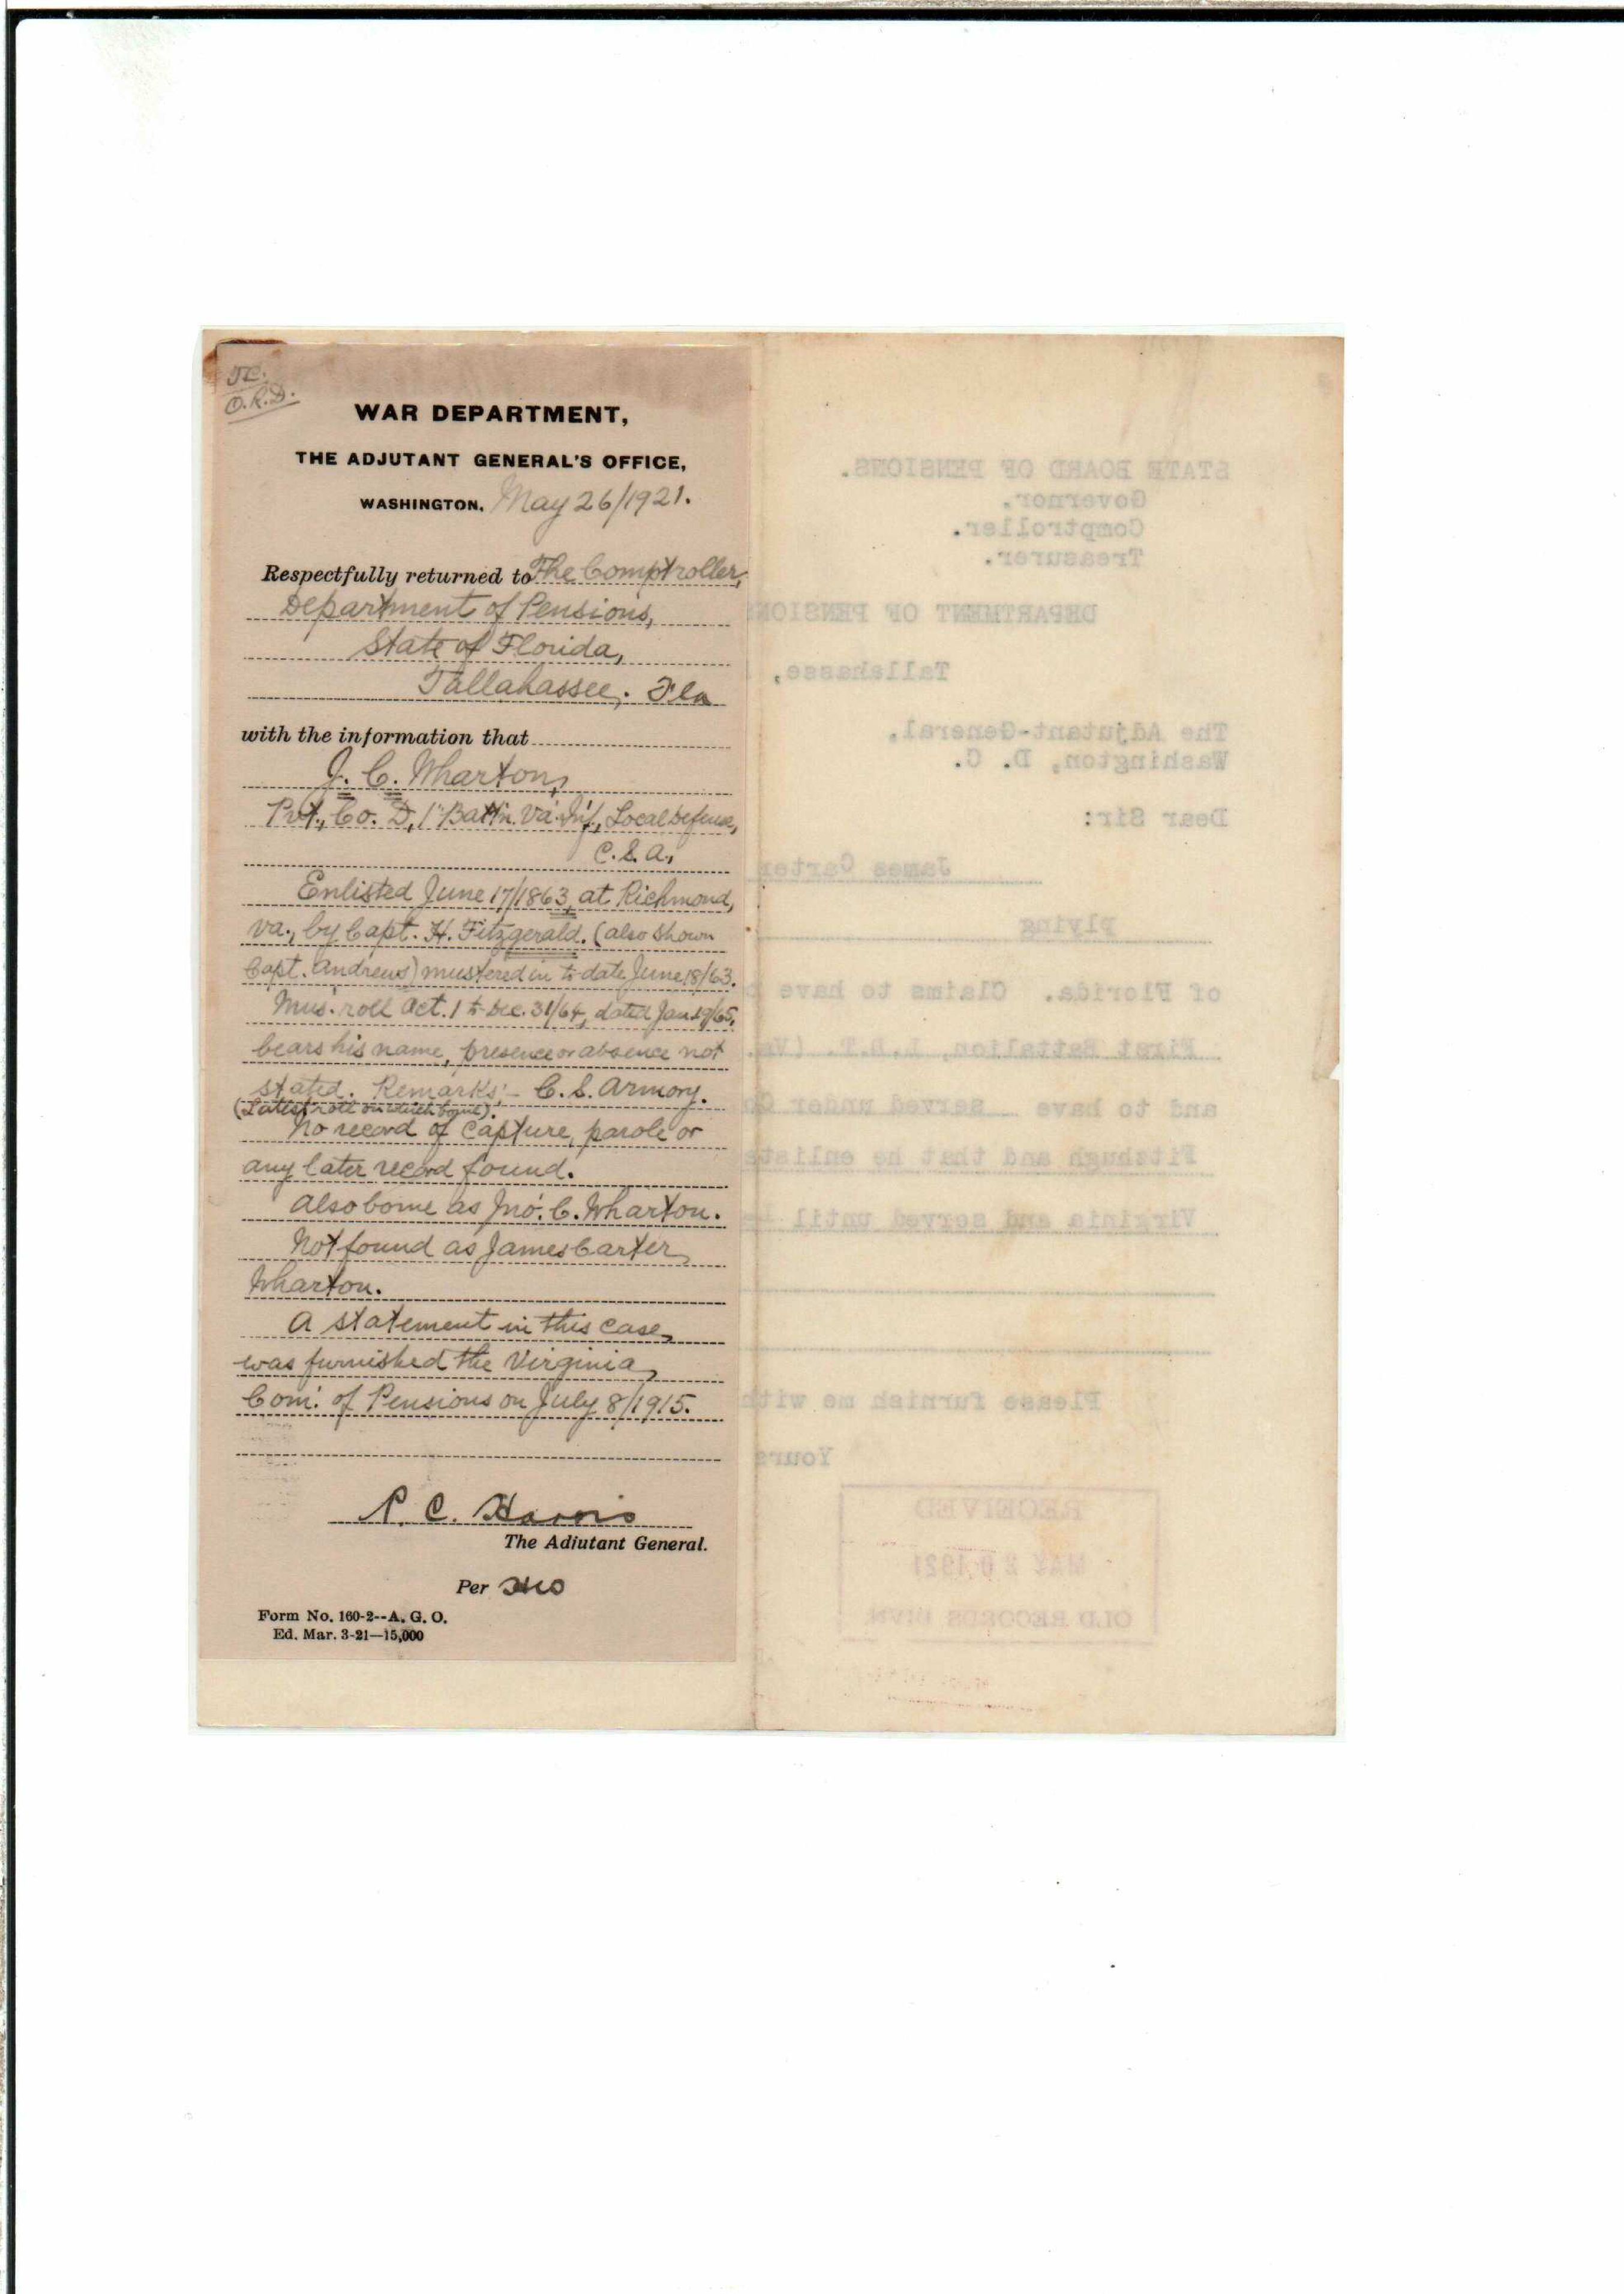 JC.
O.R.D.
WAR DEPARTMENT,
THE ADJUTANT GENERAL'S OFFICE,
WASHINGTON. May 26/1921.
Respectfully returned to The Comptroller,
Department of Pensions,
State of Florida,
Tallahassee, Fla
with the information that
J. C. Wharton,
Pvt., Co. D, 1" Batt'n. Va. Inf., Local Defense,
C.S.A.,
Enlisted June 17/1863, at Richmond,
Va., by Capt. H. Fitzgerald. (also shown
Capt. Andrews) mustered in to date June 18/63.
Mus. roll Oct. 1 to Dec. 31/64, dated Jan. 19/65,
bears his name, presence or absence not
stated. Remarks:- C. S. Armory.
(Latest roll on which borne).
No record of capture, parole or
any later record found.
Also borne as Jno. C. Wharton.
Not found as James Carter
Wharton.
A statement in this case,
was furnished the Virginia
Com. of Pensions on July 8/1915.
P. C. Harris
The Adjutant General.
Per
Form No. 160-2--A. G. O.
Ed. Mar. 3-21—15,000
STATE BOARD OF PENSIONS.
Governor.
Comptroller.
Treasurer.
DEPARTMENT OF PENSION
Tallahassee,
The Adjutant-General,
Washington, D. C.
Dear Sir:
James Carter
plying
of Florida. Claims to have b
First Battalion, L.D.T. (Va.
and to have served under Co
Fitzhugh and that he enliste
Virginia and served until
Please furnish me with
Yours
RECEIVED
MAY 20 1921
OLD RECORDS DIVN